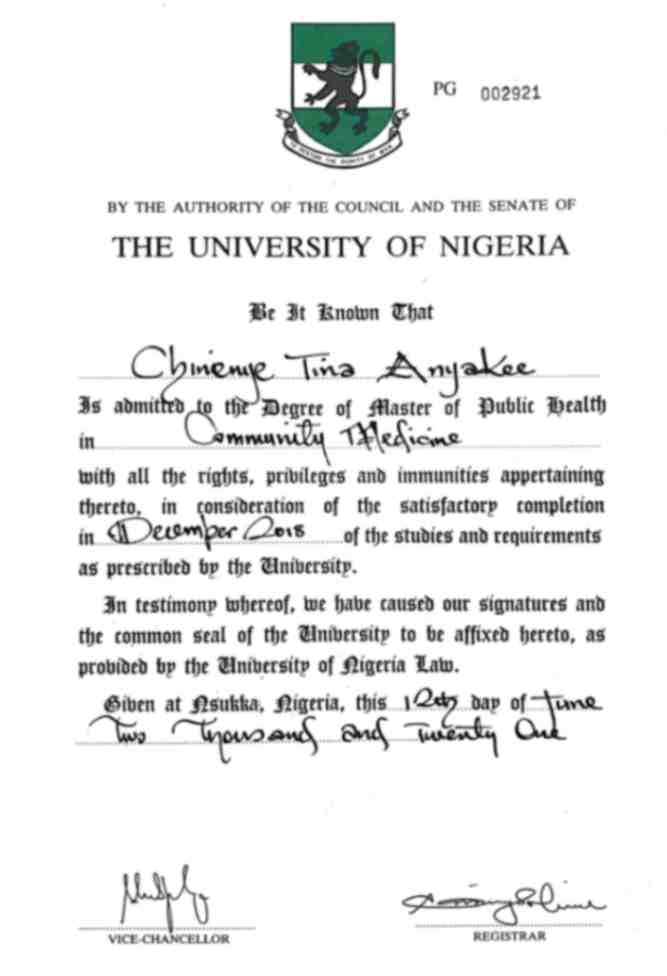 PG 002921
TO RESTORE THE DIGNITY OF MAN
BY THE AUTHORITY OF THE COUNCIL AND THE SENATE OF
THE UNIVERSITY OF NIGERIA
Be It Known That
Chinenye Tina Anyakee
Is admitted to the Degree of Master of Public Health
in Community Medicine
with all the rights, privileges and immunities appertaining
thereto, in consideration of the satisfactory completion
in December 2018 of the studies and requirements
as prescribed by the University.
In testimony whereof, we have caused our signatures and
the common seal of the University to be affixed hereto, as
provided by the University of Nigeria Law.
Given at Nsukka, Nigeria, this 12th day of June
Two Thousand and Twenty One
VICE-CHANCELLOR
REGISTRAR